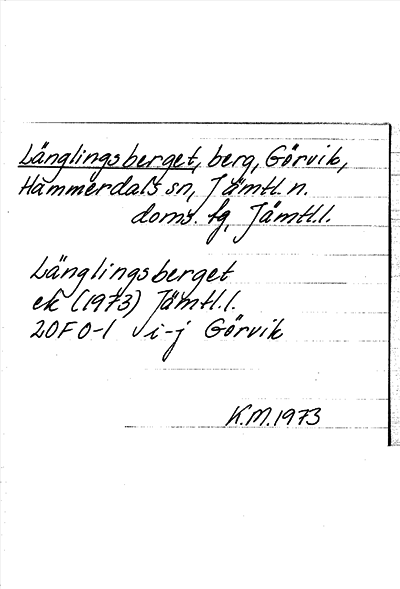 Länglingsberget, berg, Görvik,
Hammerdals sn, Jämtl. n.
doms. fg, Jämtl.l.
Länglingsberget
ek (1973) Jämtl.l.
20F 0-1 i-j Görvik
K.M. 1973